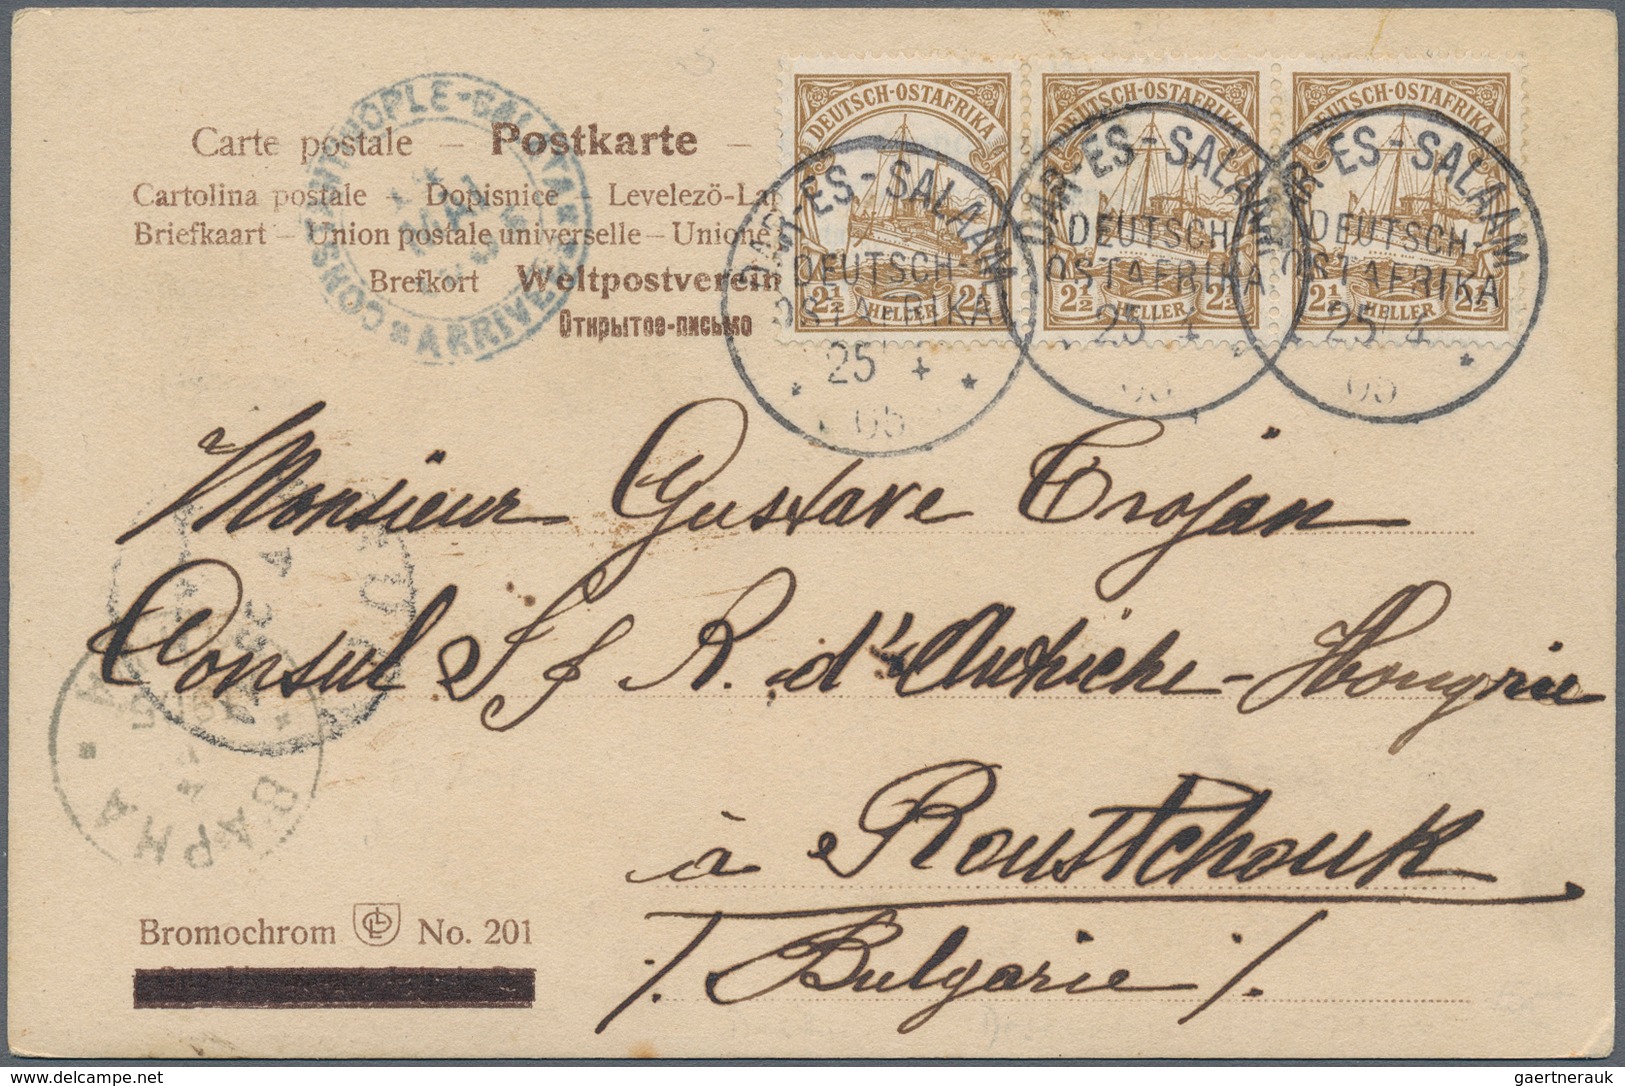 Carte postale – Postkarte –
Cartolina postale – Dopisnice – Levelező-La
Briefkaart – Union postale universelle – Unione
Brefkort Weltpostverein
Открытое-письмо
CONSTANTINOPLE-GALATA
ARRIVEE
MAI
DEUTSCH-OSTAFRIKA
2½ HELLER 2½
DEUTSCH-OSTAFRIKA
2½ HELLER 2½
DEUTSCH-OSTAFRIKA
2½ HELLER 2½
DAR-ES-SALAAM
DEUTSCH-
OSTAFRIKA
25 4
05
DAR-ES-SALAAM
DEUTSCH-
OSTAFRIKA
25 4
05
DAR-ES-SALAAM
DEUTSCH-
OSTAFRIKA
25/4
05
Monsieur Gustave Trojan
Consul I f R. d'Autriche-Hongrie
à Roustchouk
/. Bulgarie /.
ВАРНА
Bromochrom No. 201
delcampe.net
gaertnerauk